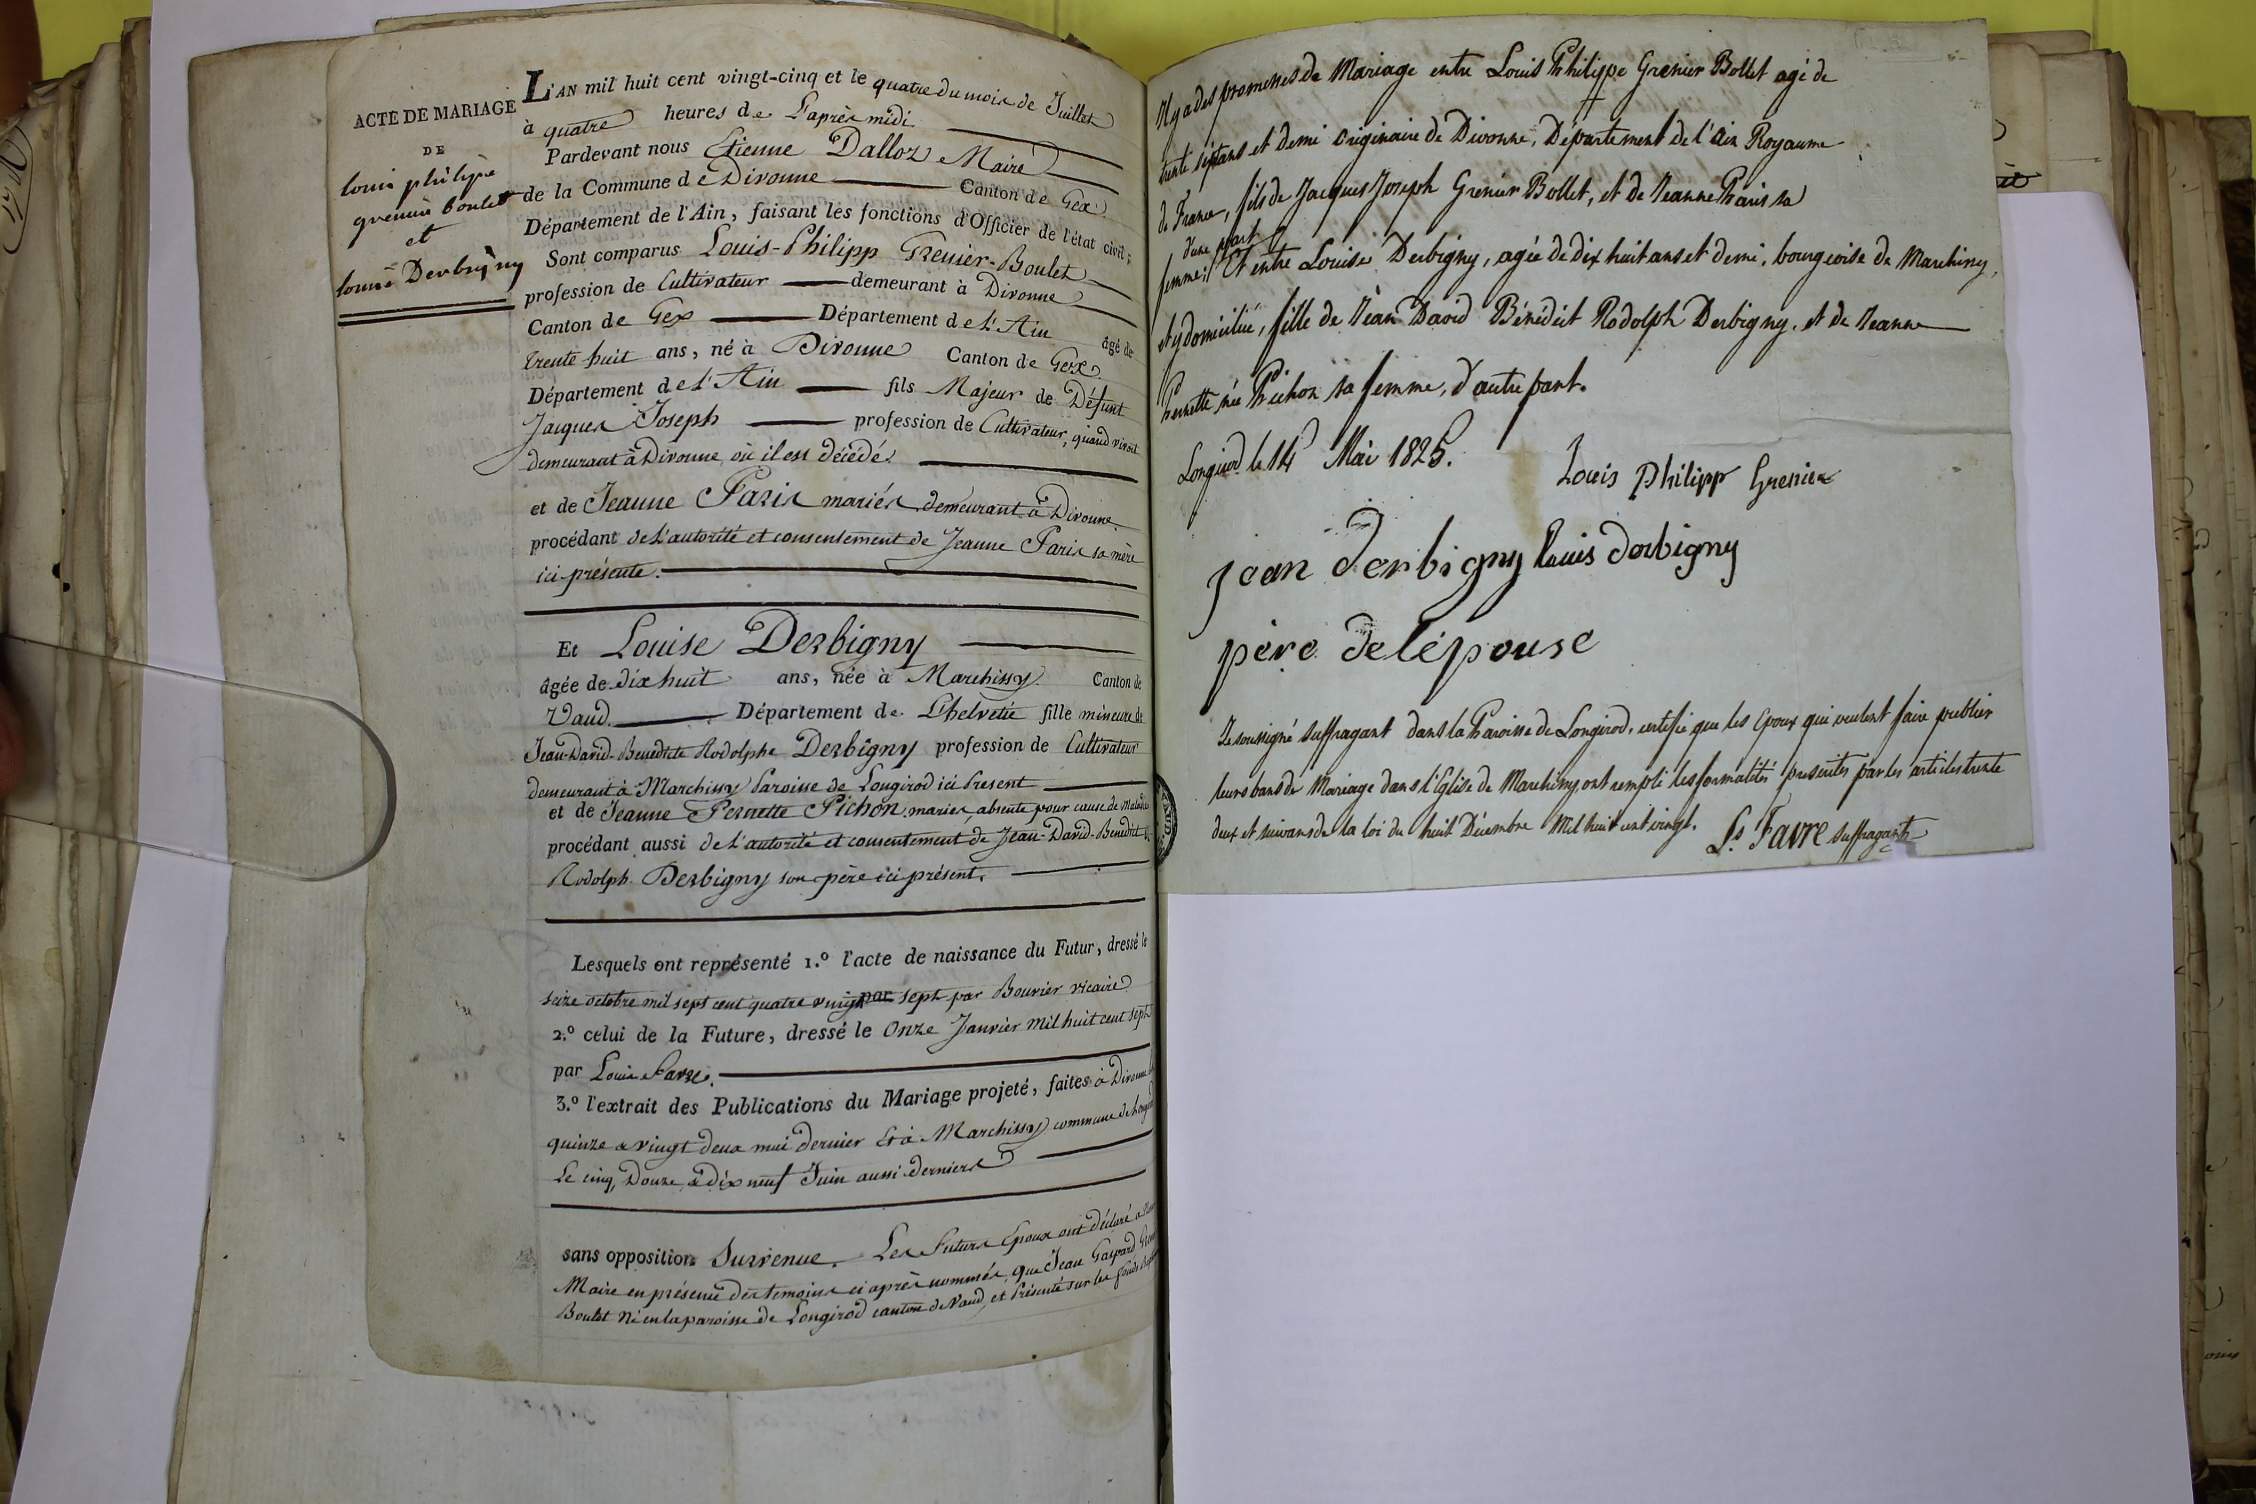 ACTE DE MARIAGE
DE
louis philipe
grenier boulet
et
louise Derbigny
L'AN mil huit cent vingt-cinq et le quatre du mois de Juillet
à quatre heures de L'après midi
Pardevant nous Etienne Dalloz Maire
de la Commune de Divonne Canton de Gex
Département de l'Ain, faisant les fonctions d'Officier de l'état civil;
Sont comparus Louis-Philipp Grenier-Boulet
profession de Cultivateur demeurant à Divonne
Canton de Gex Département de L'Ain âgé de
trente huit ans, né à Divonne Canton de Gex
Département de L'Ain fils Majeur de Défunt
Jacques Joseph profession de Cultivateur, quand vivait
demeurant à Divonne où il est décédé.
et de Jeanne Paris mariés demeurant à Divonne
procédant de L'autorité et consentement de Jeanne Paris sa mère
ici présente.
Et Louise Derbigny
âgée de dix huit ans, née à Marchissy Canton de
Vaud Département de L'helvetie fille mineure de
Jean-David-Benedicte Rodolphe Derbigny profession de Cultivateur
demeurant à Marchissy Paroisse de Longirod ici Present
et de Jeanne Pernette Pichon mariés, absente pour cause de Maladie
procédant aussi de L'autorité et consentement de Jean-David-Benedict
Rodolph Derbigny son père ici présent.
Lesquels ont représenté 1.º l'acte de naissance du Futur, dressé le
seize octobre mil sept cent quatre vingt par sept par Bouvier vicaire
2.º celui de la Future, dressé le Onze Janvier mil huit cent sept
par Louis Favre.
3.º l'extrait des Publications du Mariage projeté, faites à Divonne
quinze & vingt deux mai dernier Et à Marchissy commune de
Le cinq, Douze & dix neuf Juin aussi derniers
sans opposition Survenue. Les Futurs Epoux ont déclaré à
Maire en présence des temoins ci après nommés, que Jean Gaspard
Boulet né en la paroisse de Longirod canton de Vaud, et Présenté sur les fonds
Il y a des promesses de Mariage entre Louis Philippe Grenier Bollet agé de
trente sept ans et demi originaire de Divonne, Département de l'Ain Royaume
de France, fils de Jacques Joseph Grenier Bollet, et de Jeanne Paris sa
d'une part
femme; Et entre Louise Derbigny, agée de dix huit ans et demi, bourgeoise de Marchissy,
et y domiciliée, fille de Jean David Bénédict Rodolph Derbigny, et de Jeanne
Pernette née Pichon sa femme, d'autre part.
Longirod le 14 Mai 1825.
Louis Philipp Grenier
jean derbigny Louis derbigny
père de lépouse
Je soussigné suffragant dans la Paroisse de Longirod, certifie que les Epoux qui veulent faire publier
leurs bans de Mariage dans l'Eglise de Marchissy, ont rempli les formalités prescrites par les articles trente
deux et suivans de la loi du huit Décembre Mil huit cent vingt. Ls Favre suffragant